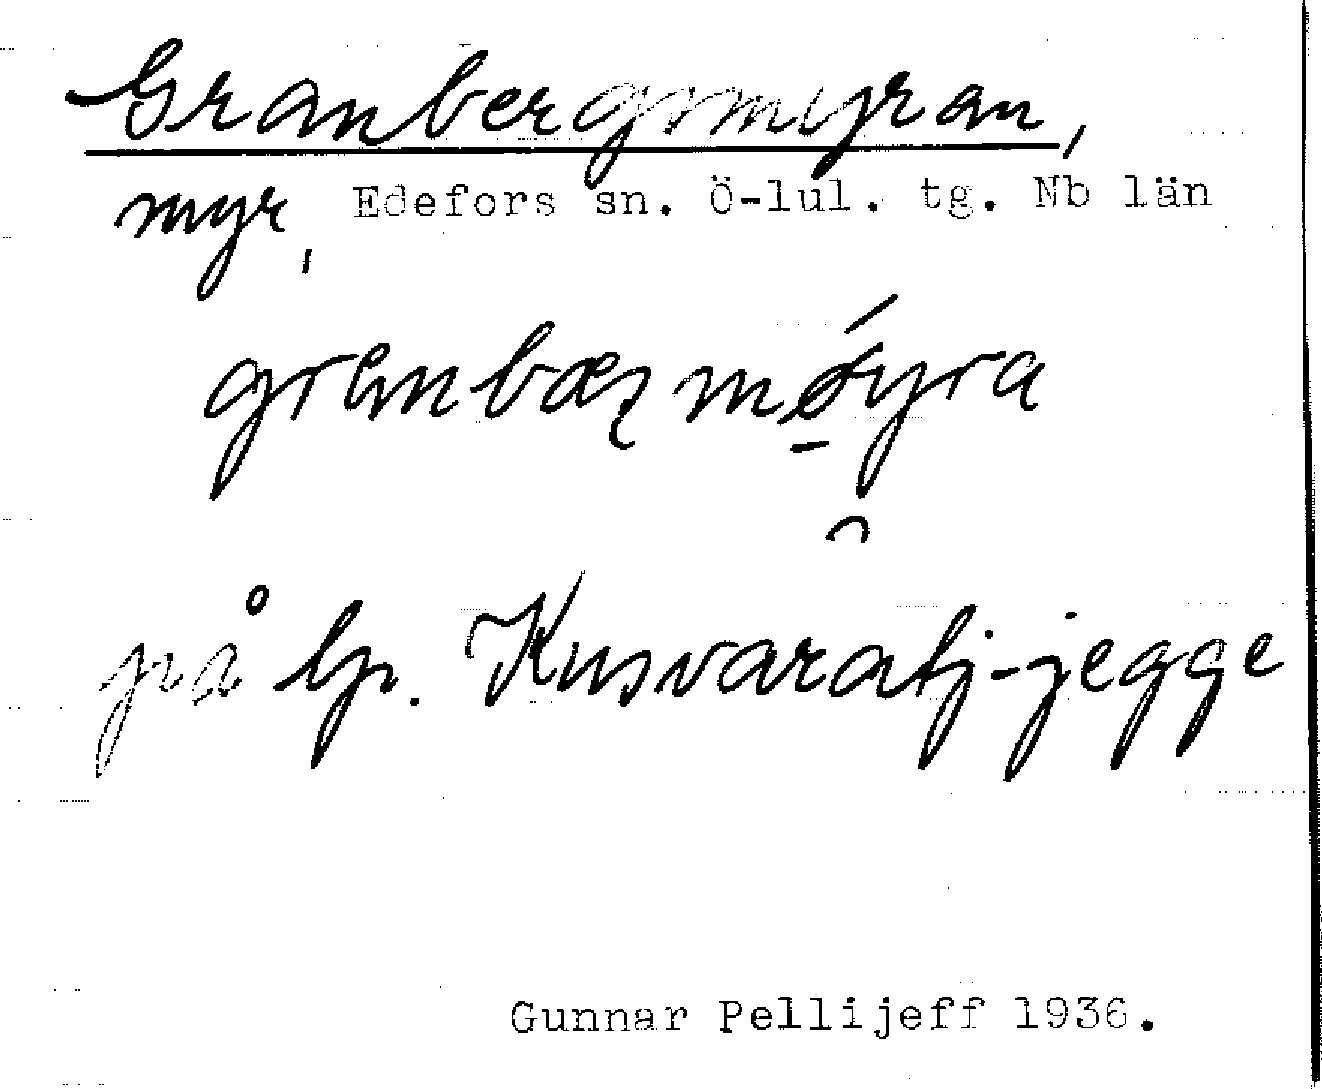 Granbergsmyran,
myr, Edefors sn. Ö-lul. tg. Nb län
granbæʂmǿ̱yra
på lp. Kusvaratj-jegge
Gunnar Pellijeff 1936.